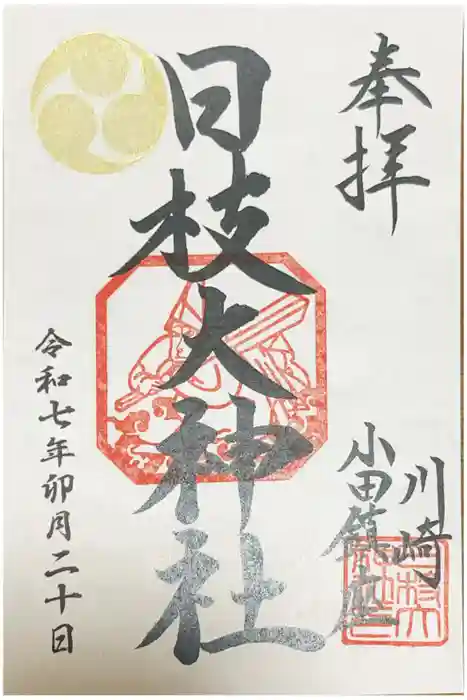 奉拝
川崎
小田鎮座
日枝大神社
令和七年卯月二十日